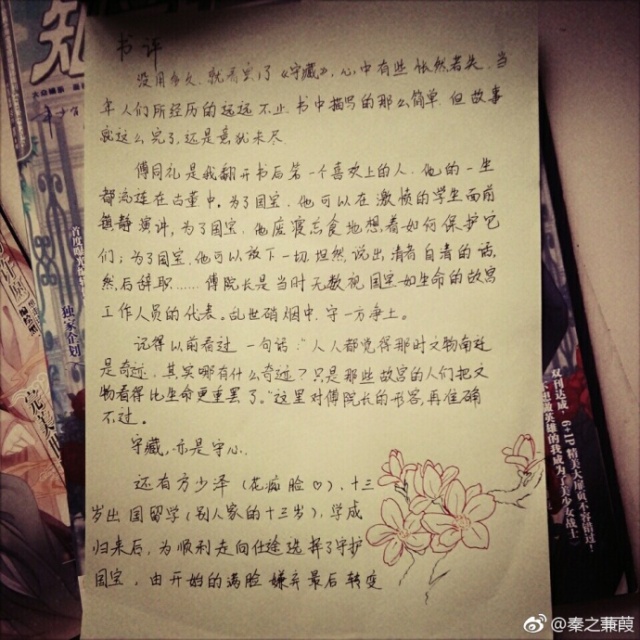 书评
没用多久，就看完了《守藏》，心中有些怅然若失，当
年人们所经历的远远不止书中描写的那么简单，但故事
就这么完了，还是意犹未尽
傅同礼是我翻开书后第一个喜欢上的人，他的一生
都流连在古董中，为了国宝，他可以在激愤的学生面前
镇静演讲，为了国宝，他废寝忘食地想着如何保护它
们；为了国宝，他可以放下一切，坦然说出，清者自清的话，
然后辞职……傅院长是当时无数视国宝如生命的故宫
工作人员的代表。乱世硝烟中，守一方净土。
记得以前看过一句话："人人都觉得那时文物南迁
是奇迹，其实哪有什么奇迹？只是那些故宫的人们把文
物看得比生命更重罢了。"这里对傅院长的形容，再准确
不过。
守藏，亦是守心。
还有方少泽（花痴脸♡），十三
岁出国留学（别人家的十三岁），学成
归来后，为顺利走向仕途选择了守护
国宝，由开始的满脸嫌弃最后转变
知
首度曝
独家企划
双刊达成，6+1P精美大屏页不容错过！
不想做英雄的我成为了美少女战士
@秦之蒹葭